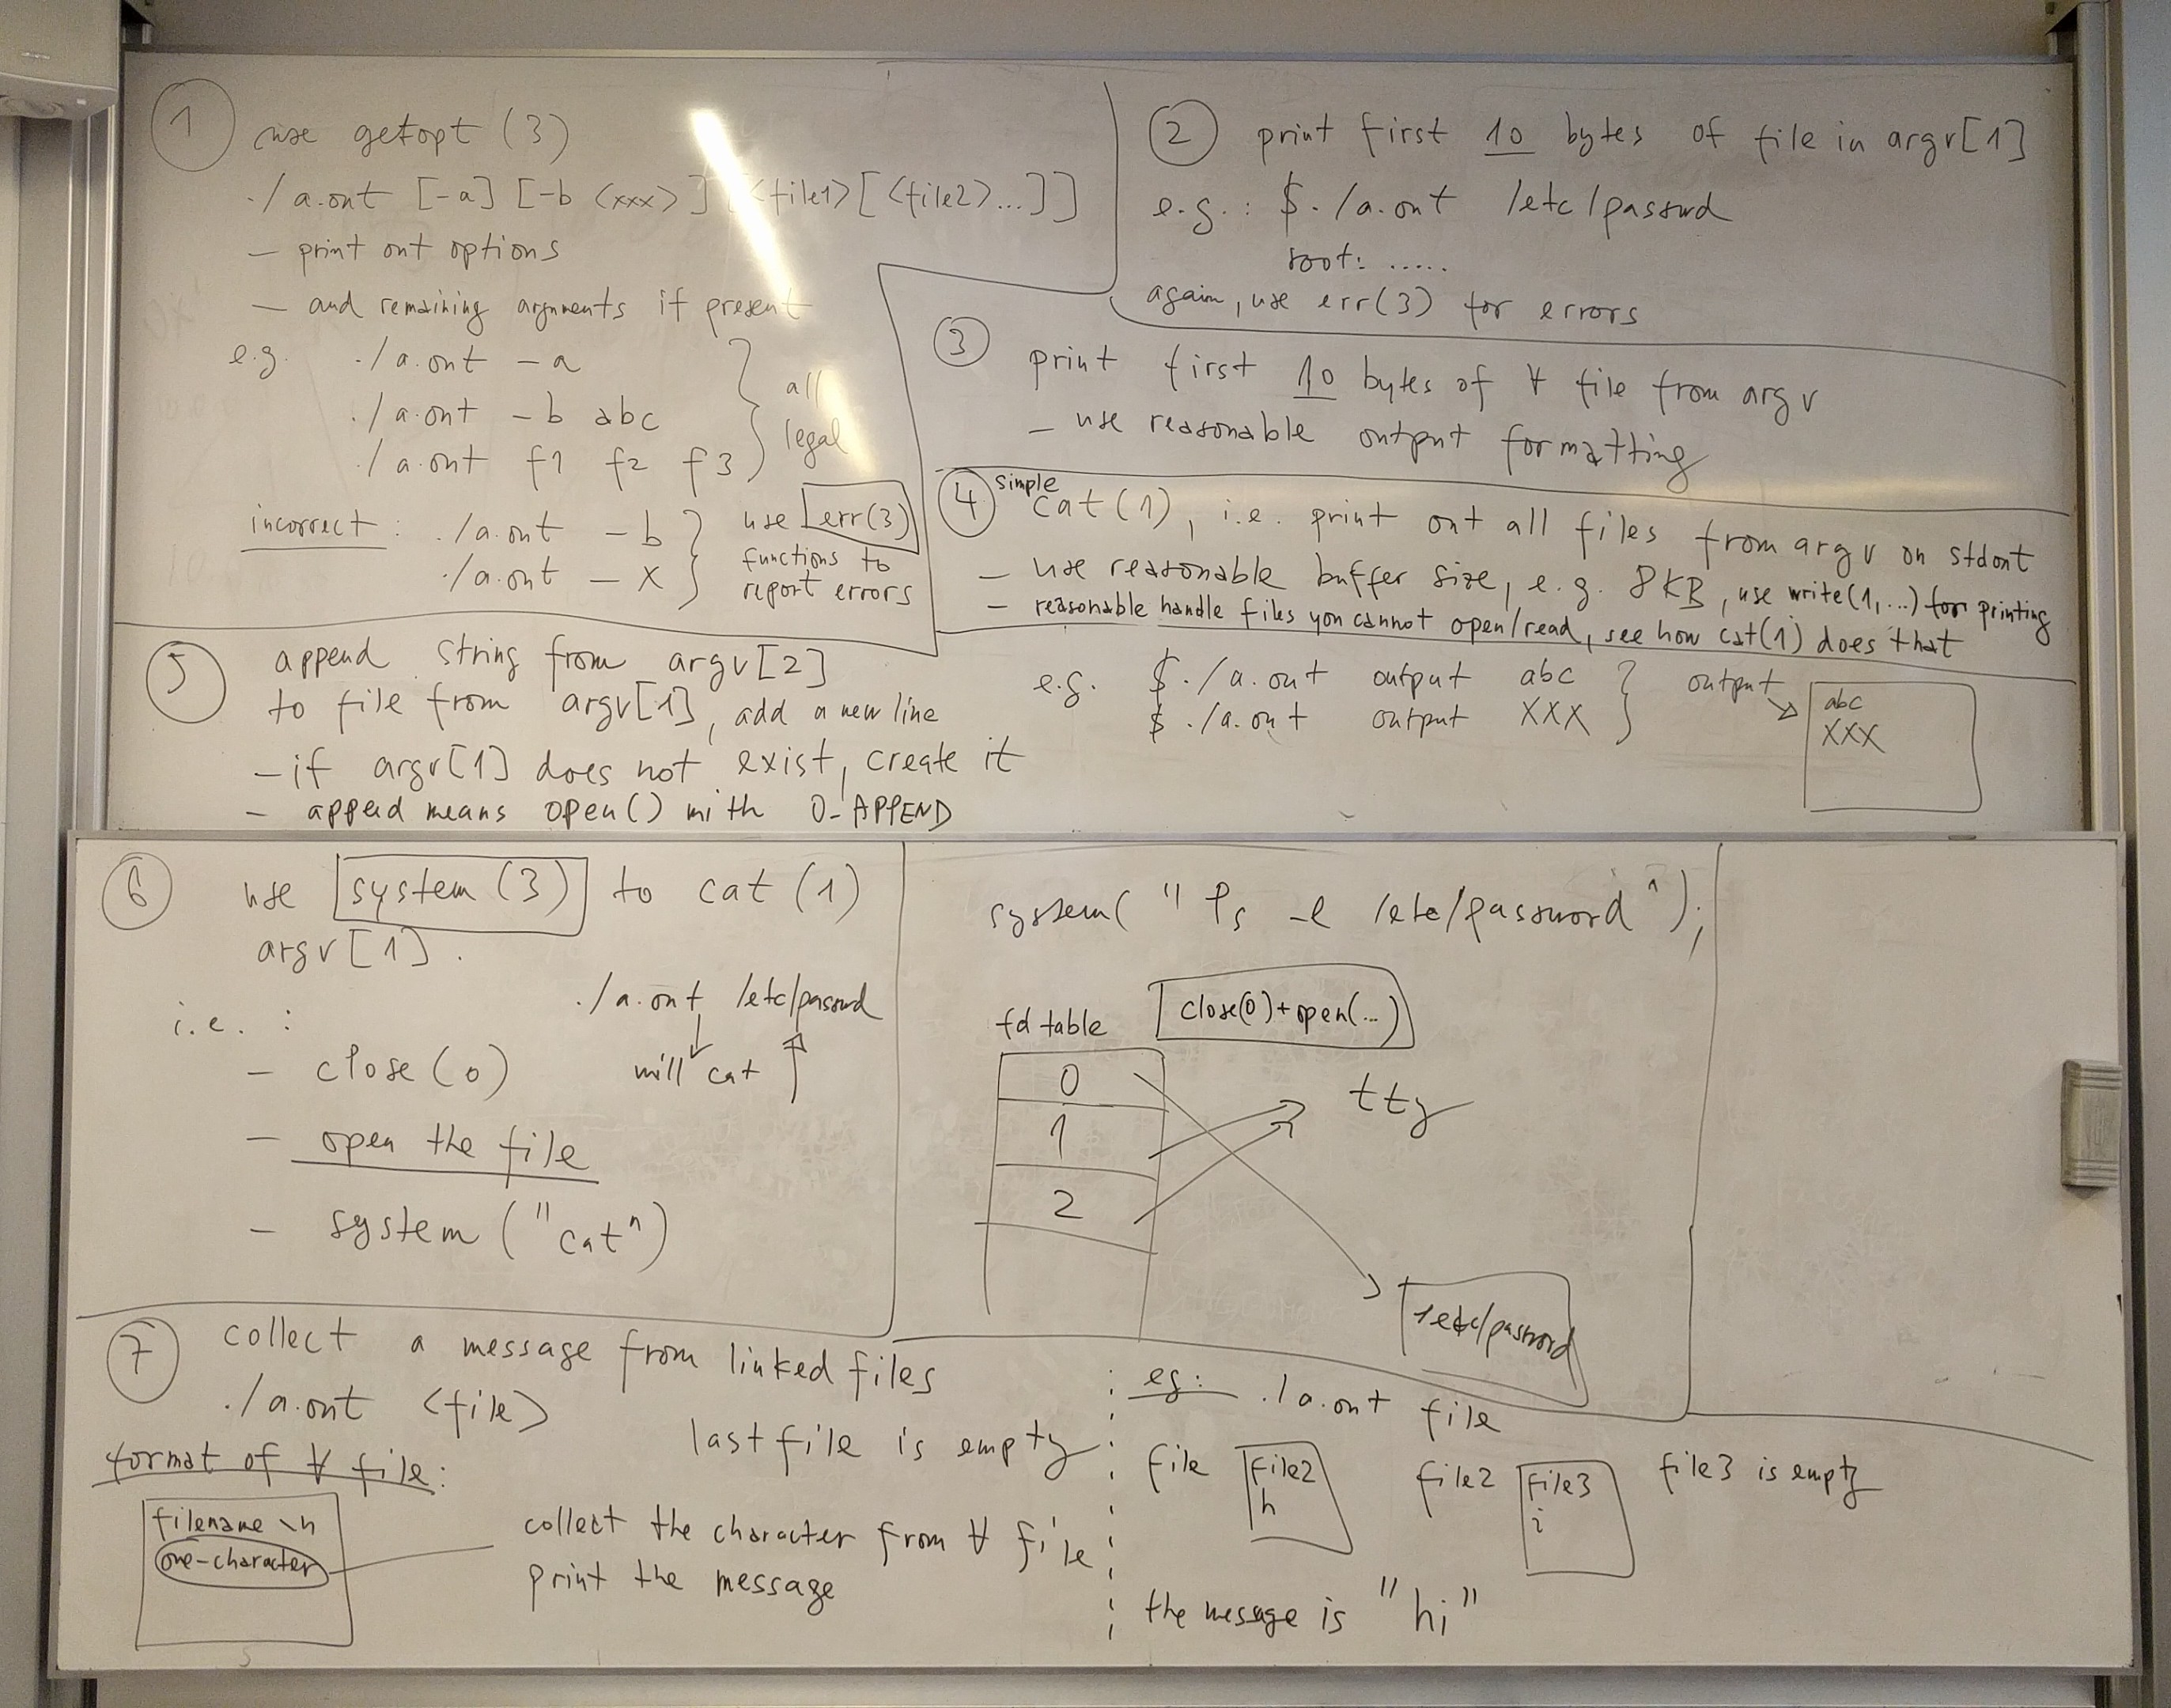 1
use getopt (3)
./a.out [-a] [-b <xxx>] [<file1>[<file2>...]]
- print out options
- and remaining arguments if present
e.g. ./a.out -a
./a.out -b abc
./a.out f1 f2 f3
all
legal
incorrect: ./a.out -b
./a.out -x
use err(3)
functions to
report errors
2
print first 10 bytes of file in argv[1]
e.g.: $./a.out /etc/passwd
root: .....
again, use err(3) for errors
3
print first 10 bytes of ∀ file from argv
- use reasonable output formatting
4
simple
cat(1), i.e. print out all files from argv on stdout
- use reasonable buffer size, e.g. 8KB, use write(1,...) for printing
- reasonable handle files you cannot open/read, see how cat(1) does that
5
append string from argv[2]
to file from argv[1], add a new line
- if argv[1] does not exist, create it
- append means open() with O_APPEND
e.g. $./a.out output abc
$./a.out output XXX
output
abc
XXX
6
use system (3) to cat (1)
argv[1].
i.e.:
./a.out /etc/passwd
will cat
- close(0)
- open the file
- system ("cat")
system("ls -l /etc/password");
fd table
close(0)+open(...)
0
1
2
tty
/etc/password
7
collect a message from linked files
./a.out <file>
last file is empty
format of ∀ file:
filename \n
one-character
collect the character from ∀ file
print the message
eg: ./a.out file
file
file2
h
file2
file3
i
file3 is empty
the message is "hi"